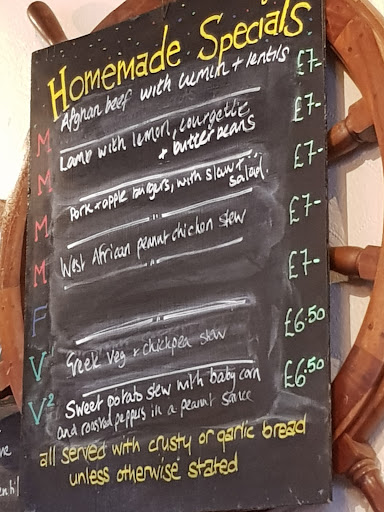 Homemade Specials
M Afghan beef with cumin + lentils £7-
M Lamb with lemon, courgette £7-
+ butter beans
M Pork + apple burgers, with slaw + £7-
salad.
M West African peanut chicken stew £7-
F
V Greek Veg + chickpea stew £6.50
V² Sweet potato stew with baby corn £6.50
and roasted peppers in a peanut sauce
all served with crusty or garlic bread
unless otherwise stated